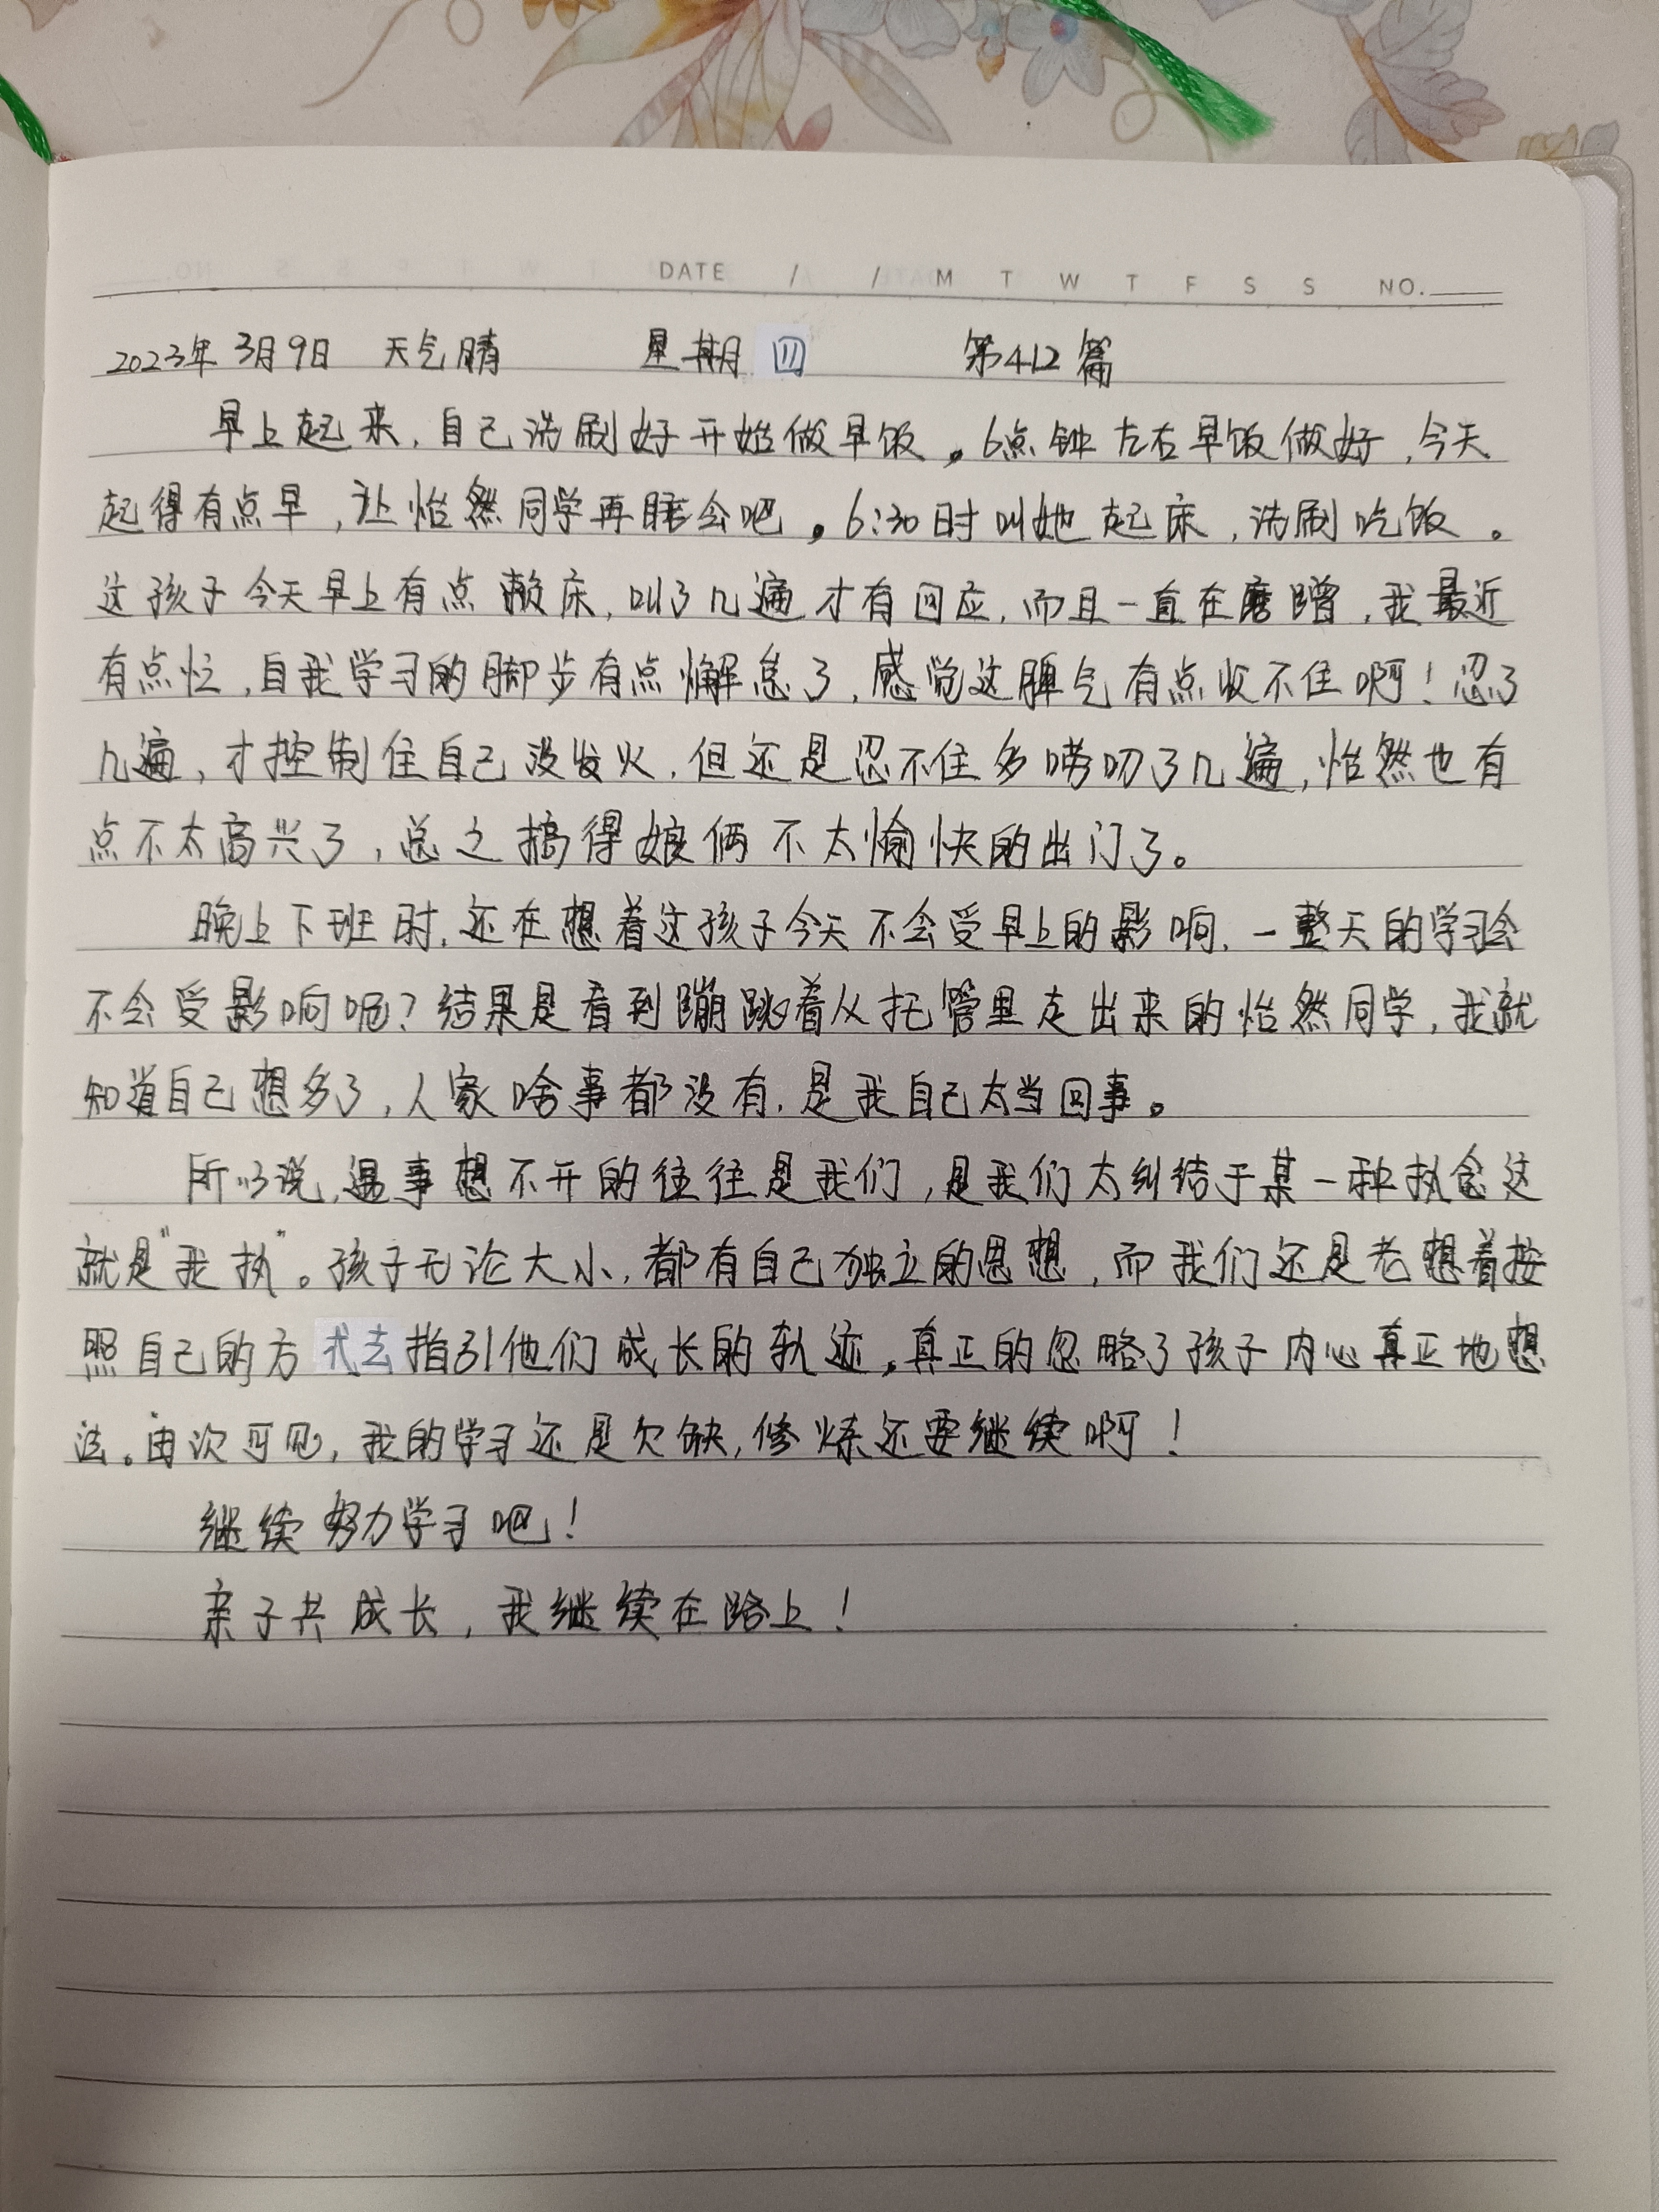 DATE / / M T W T F S S NO.
2023年3月9日 天气晴 星期四 第412篇
早上起来,自己洗刷好开始做早饭。6点钟左右早饭做好,今天
起得有点早,让怡然同学再睡会吧。6:30时叫她起床,洗刷吃饭。
这孩子今天早上有点赖床,叫了几遍才有回应,而且一直在磨蹭,我最近
有点忙,自我学习的脚步有点懈怠了,感觉这脾气有点收不住啊!忍了
几遍,才控制住自己没发火,但还是忍不住多唠叨了几遍,怡然也有
点不太高兴了,总之搞得娘俩不太愉快的出门了。
晚上下班时,还在想着这孩子今天不会受早上的影响,一整天的学习会
不会受影响呢?结果是看到蹦跳着从托管里走出来的怡然同学,我就
知道自己想多了,人家啥事都没有,是我自己太当回事。
所以说,遇事想不开的往往是我们,是我们太纠结于某一种执念这
就是“我执”。孩子无论大小,都有自己独立的思想,而我们还是老想着按
照自己的方式去指引他们成长的轨迹,真正的忽略了孩子内心真正地想
法。由次可见,我的学习还是欠缺,修炼还要继续啊!
继续努力学习吧!
亲子共成长,我继续在路上!